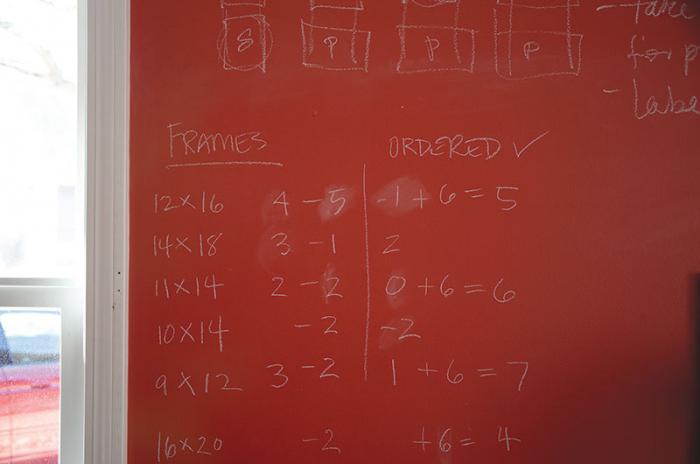 - take
S P P P
for p
- Labe
FRAMES ORDERED ✓
12x16 4 -5 -1 + 6 = 5
14x18 3 -1 2
11x14 2 -2 0 +6 = 6
10x14 -2 -2
9x12 3 -2 1 +6 = 7
16x20 -2 +6 = 4